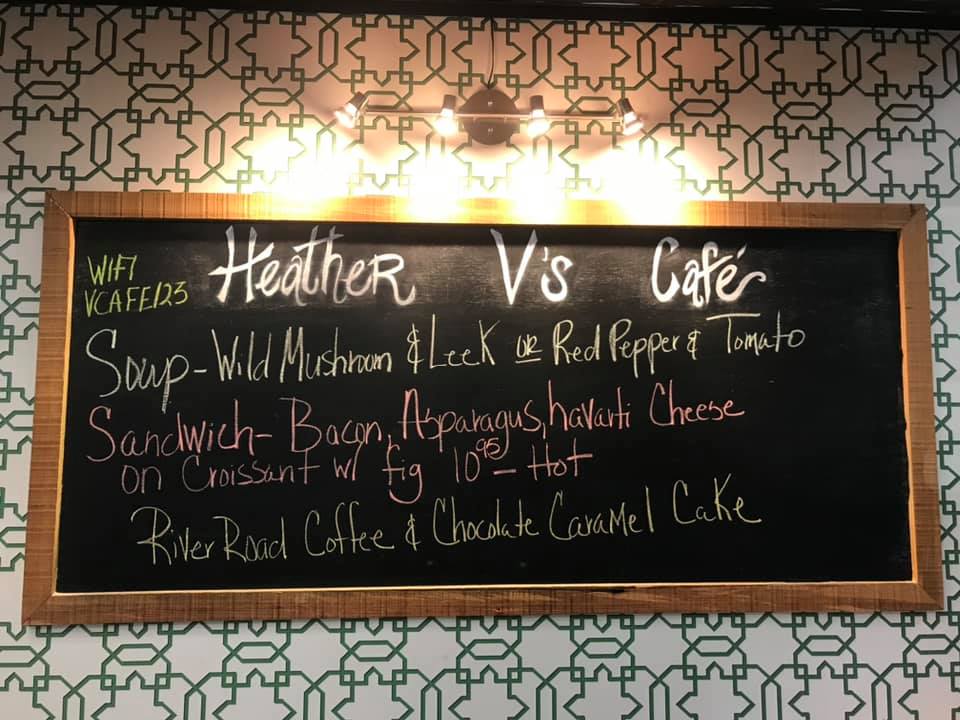 WIFI
VCAFE123
Heather V's Café
Soup - Wild Mushroom & Leek or Red Pepper & Tomato
Sandwich - Bacon, Asparagus, havarti Cheese
on Croissant w/ fig 10.95 - Hot
River Road Coffee & Chocolate Caramel Cake